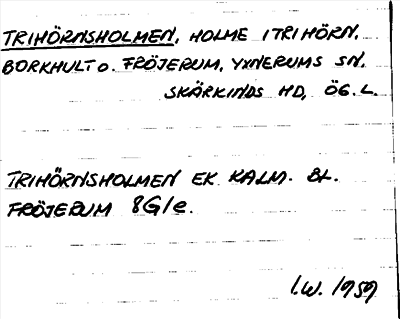 TRIHÖRNSHOLMEN, HOLME I TRIHÖRN,
BORKHULT O. FRÖJERUM, YXNERUMS SN,
SKÄRKINDS HD, ÖG. L.
TRIHÖRNSHOLMEN EK KALM. BL.
FRÖJERUM 8G1e.
I.W. 1959